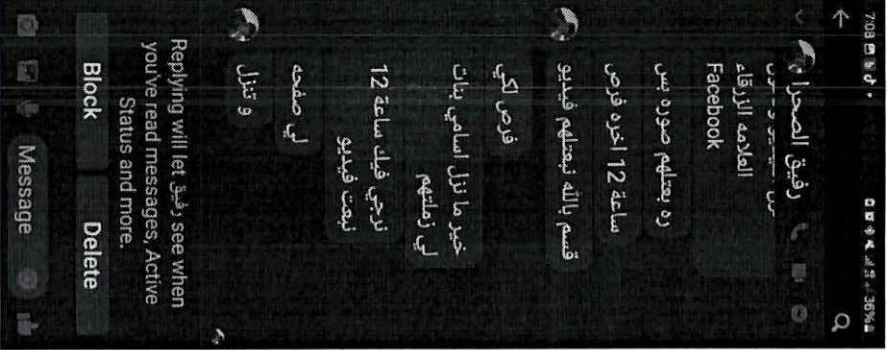 7:08
36%
رفيق الصحرا
العلامه الزرقاء
Facebook
ره بعتلهم صوره بس
ساعة 12 اخره فرص
قسم بالله نبعتلهم فيديو
فرص لكي
خير ما نزل اسامي بنات
لي زملتهم
نرجي فيك ساعة 12
نبعت فيديو
لي صفحه
و تنزل
Replying will let رفيق see when
you've read messages, Active
Status and more.
Block
Delete
Message